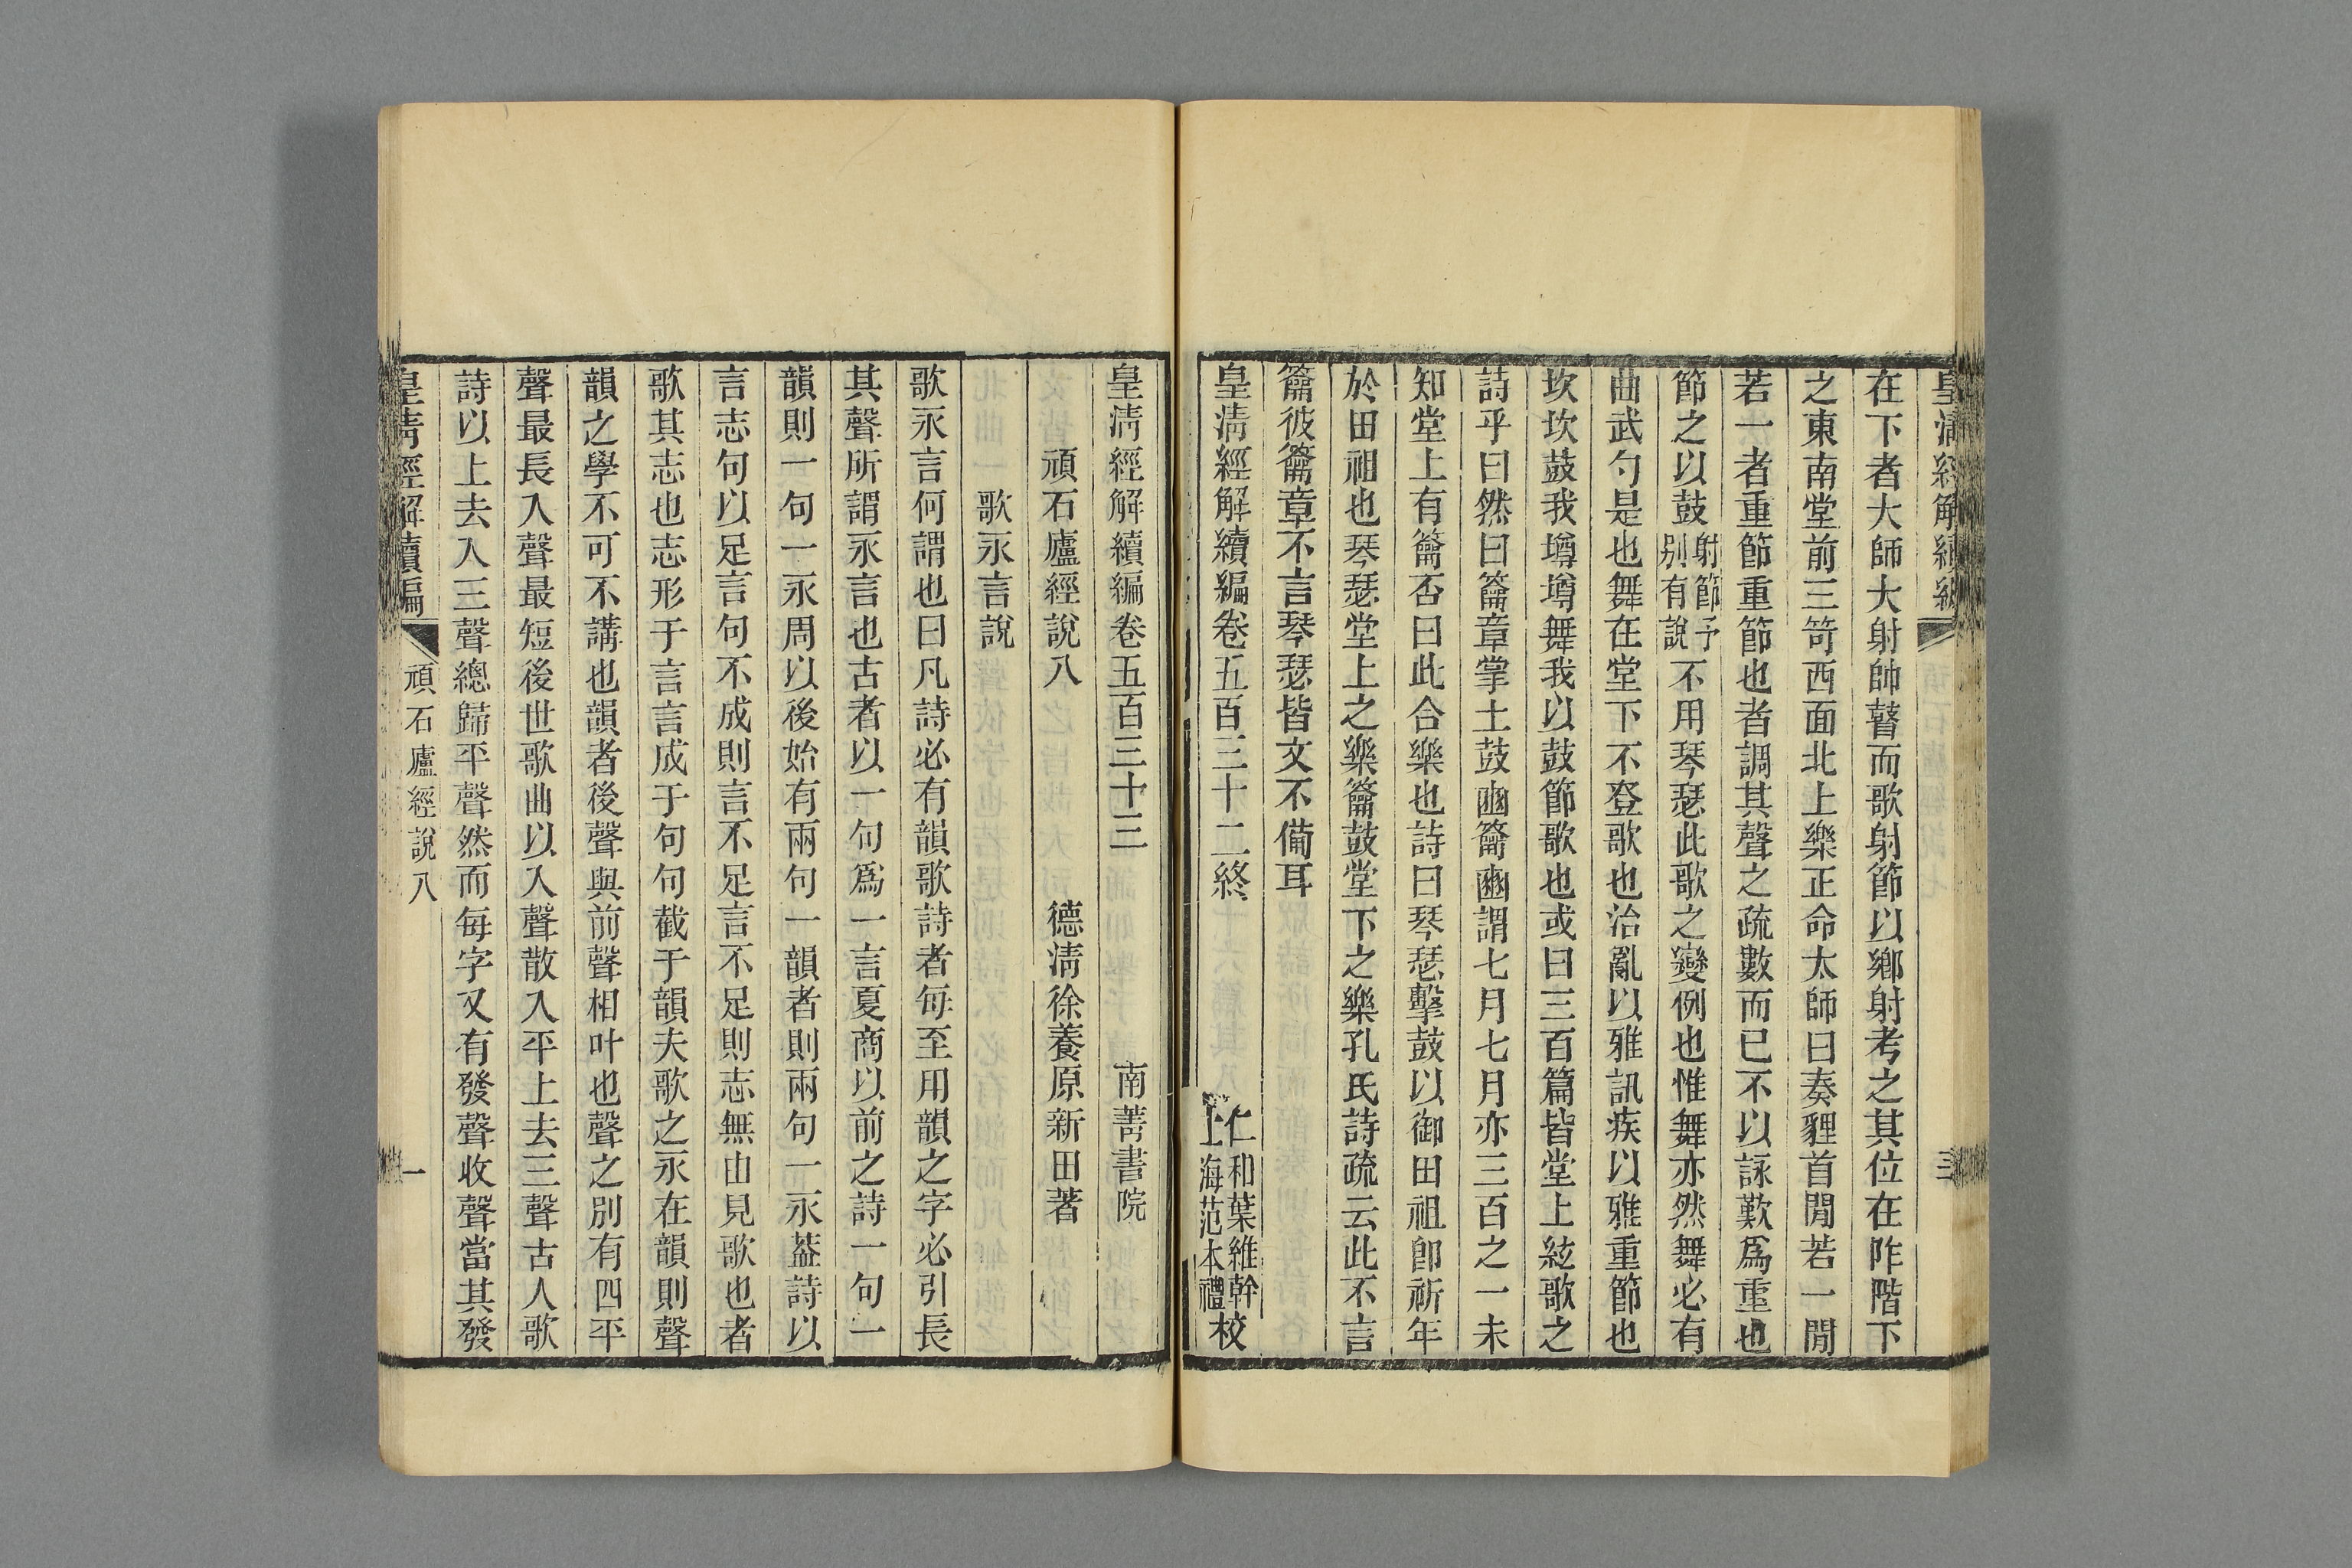 皇清經解續編
三
在下者大師大射帥瞽而歌射節以鄉射考之其位在阼階下
之東南堂前三笴西面北上樂正命太師曰奏貍首閒若一閒
若一者重節重節也者調其聲之疏數而已不以詠歎爲重也
節之以鼓射節予別有說不用琴瑟此歌之變例也惟舞亦然舞必有
曲武勺是也舞在堂下不登歌也治亂以雅訊疾以雅重節也
坎坎鼓我墫墫舞我以鼓節歌也或曰三百篇皆堂上絃歌之
詩乎曰然曰籥章掌土鼓豳籥豳謂七月七月亦三百之一未
知堂上有籥否曰此合樂也詩曰琴瑟擊鼓以御田祖卽祈年
於田祖也琴瑟堂上之樂籥鼓堂下之樂孔氏詩疏云此不言
籥彼籥章不言琴瑟皆文不備耳
皇清經解續編卷五百三十二終
仁和葉維幹
上海范本禮校
皇清經解續編卷五百三十三 南菁書院
頑石廬經說八 德清徐養原新田著
歌永言說
歌永言何謂也曰凡詩必有韻歌詩者每至用韻之字必引長
其聲所謂永言也古者以一句爲一言夏商以前之詩一句一
韻則一句一永周以後始有兩句一韻者則兩句一永葢詩以
言志句以足言句不成則言不足言不足則志無由見歌也者
歌其志也志形于言言成于句句截于韻夫歌之永在韻則聲
韻之學不可不講也韻者後聲與前聲相叶也聲之別有四平
聲最長入聲最短後世歌曲以入聲散入平上去三聲古人歌
詩以上去入三聲總歸平聲然而每字又有發聲收聲當其發
皇清經解續編
頑石廬經說八
一